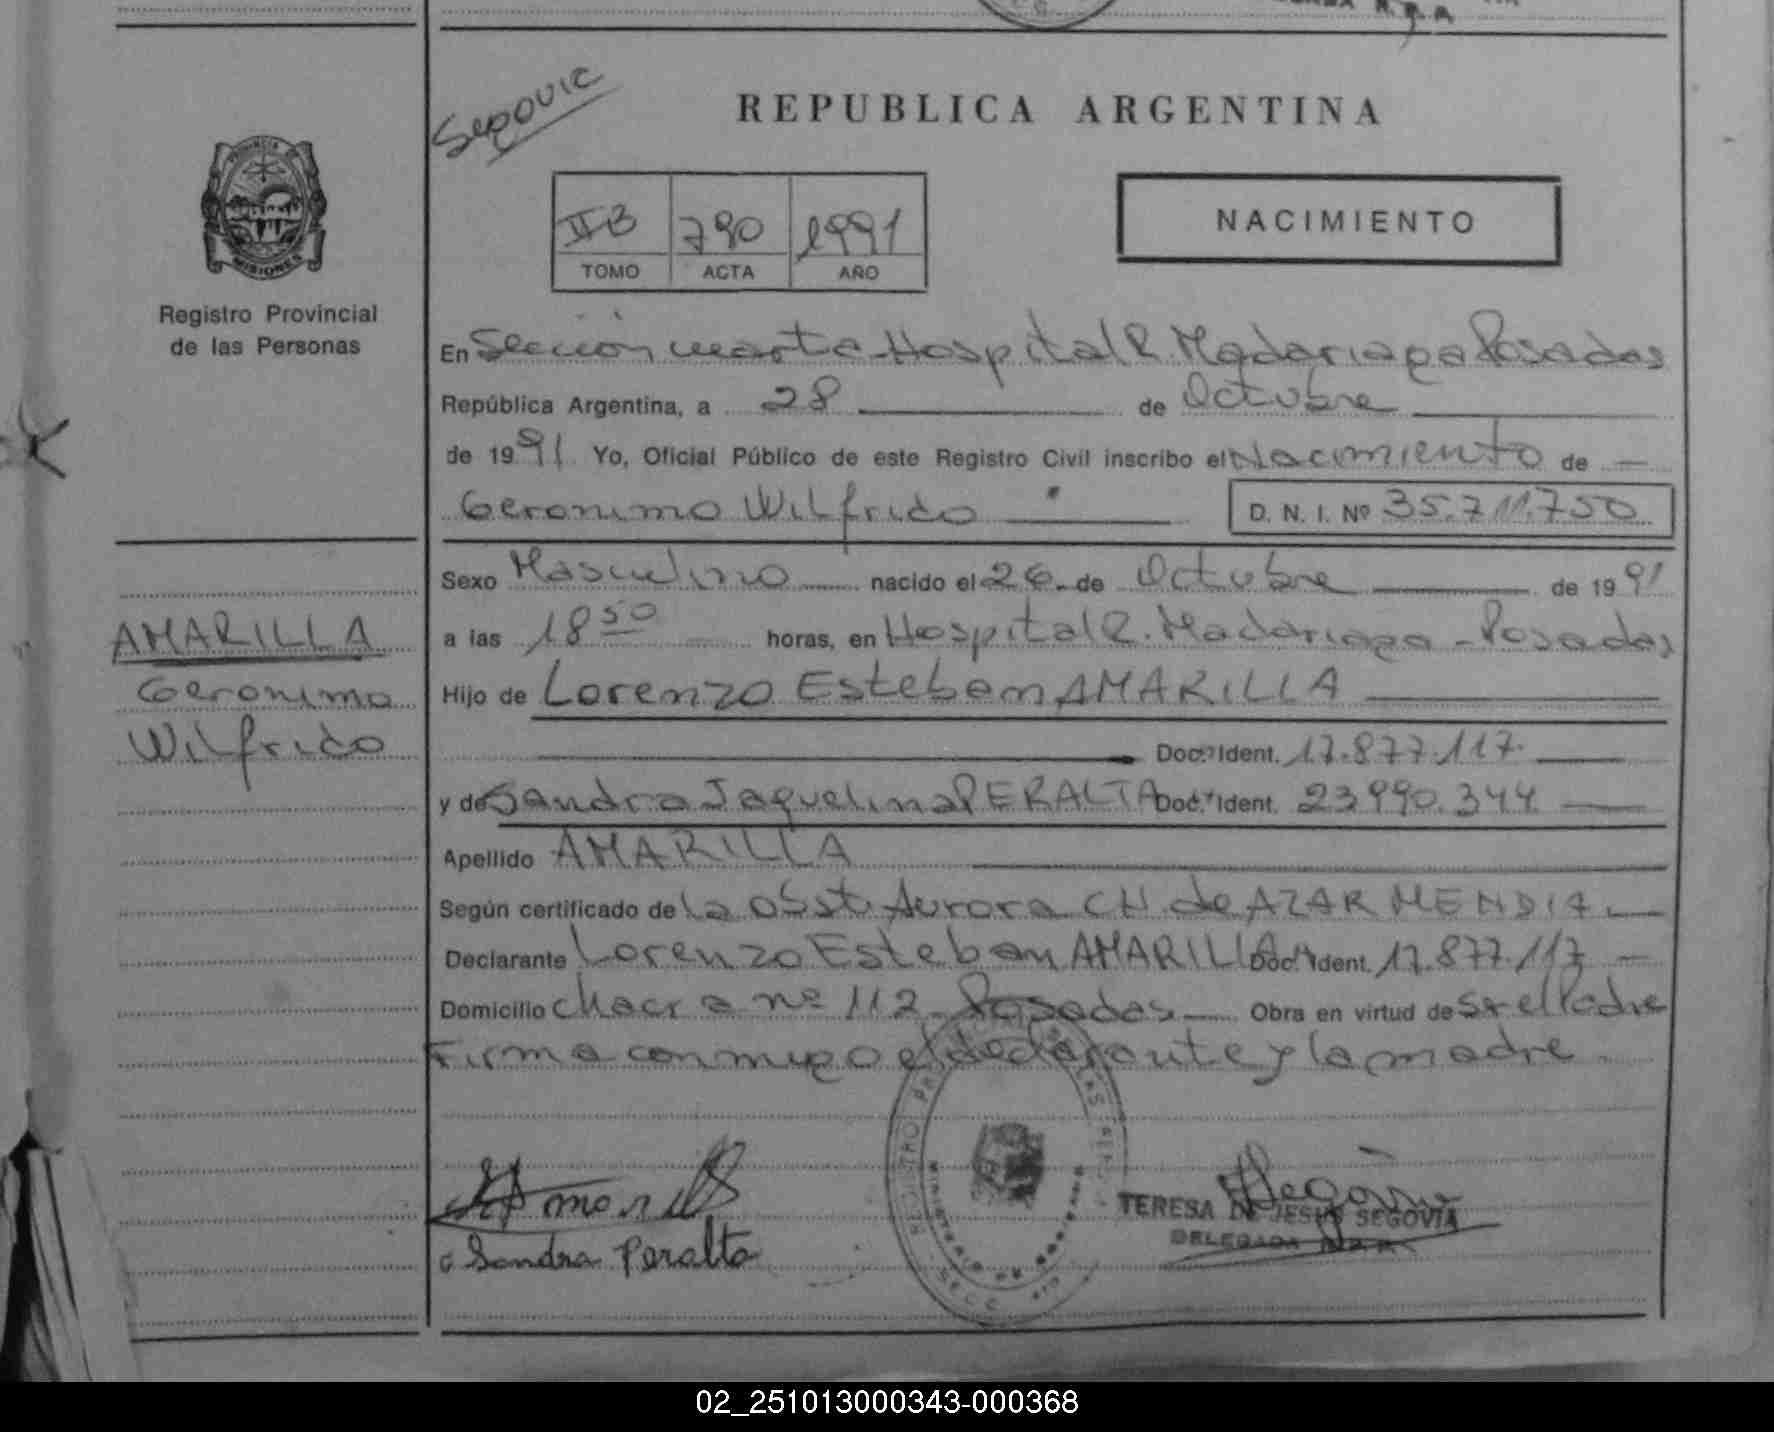 Segovic
REPUBLICA ARGENTINA
PROVINCIA DE
MISIONES
Registro Provincial
de las Personas
IIB 790 1991
TOMO ACTA AÑO
NACIMIENTO
En Sección cuarta Hospital R. Madariaga Posadas
República Argentina, a 28 de Octubre
de 1991 Yo, Oficial Público de este Registro Civil inscribo el Nacimiento de
Geronimo Wilfrido D. N. I. Nº 35.711.750
Sexo Masculino nacido el 26 de Octubre de 1991
a las 18 50 horas, en Hospital R. Madariaga - Posadas
Hijo de Lorenzo Esteban AMARILLA
Doc. Ident. 17.877.117.
y de Sandra Jaquelina PERALTA Doc. Ident. 23.990.344
Apellido AMARILLA
Según certificado de la obst. Aurora CH. de AZARMENDIA
Declarante Lorenzo Esteban AMARILLA Doc. Ident. 17.877.117
Domicilio Chacra nº 112 - Posadas Obra en virtud de Sr el Padre
Firma conmigo el declarante y la madre
AMARILLA
Geronimo
Wilfrido
Amarilla
Sandra Peralta
TERESA DE JESUS SEGOVIA
DELEGADA R.P.P.
02_251013000343-000368